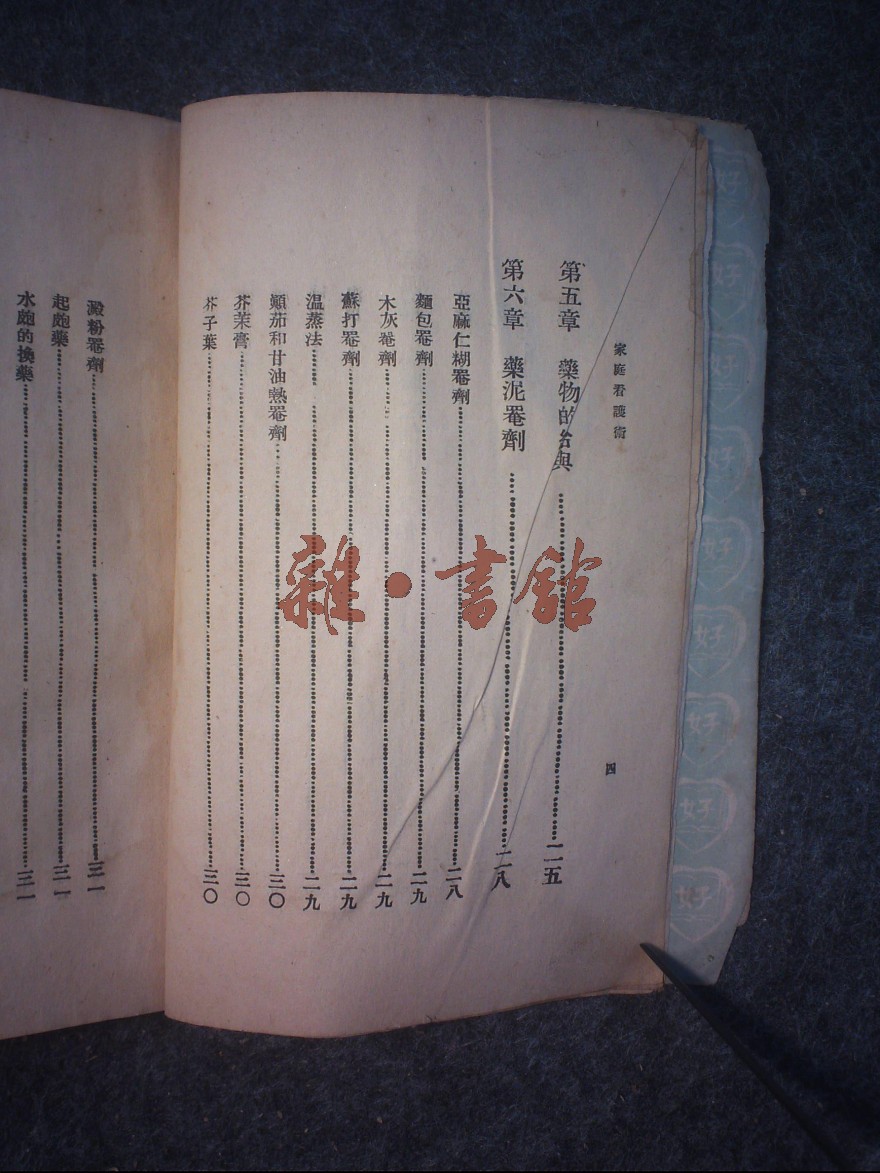 家庭看護術
四
第五章 藥物的給與 二五
第六章 藥泥罨劑 二八
亞麻仁糊罨劑 二八
麵包罨劑 二九
木灰罨劑 二九
蘇打罨劑 二九
温蒸法 二九
顛茄和甘油熱罨劑 三〇
芥茉膏 三〇
芥子葉 三〇
澱粉罨劑 三一
起皰藥 三一
水皰的換藥 三一
雜·書館
好
好
好
好
好
好
好
好
好